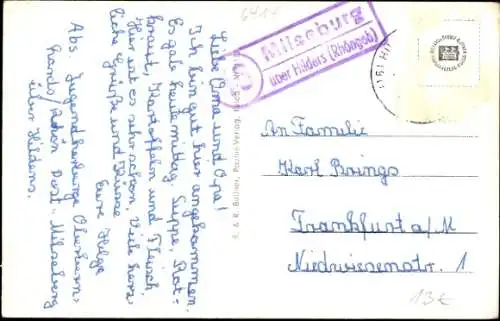 Liebe Oma und Opa!
Ich bin gut hier angekommen.
Es gab heute mittag: Suppe, Rot-
kraut, Kartoffeln und Fleisch.
Hier ist es sehr schön. Viele herz-
liche Grüße und Küsse
Eure Helga
Abs. Jugendherberge Oberbern-
hards/Rhön Post: Milseburg
über Hilders.
Milseburg
über Hilders (Rhöngeb)
An Familie
Karl Brings
Frankfurt a/M
Niedwiesenstr. 1
13€